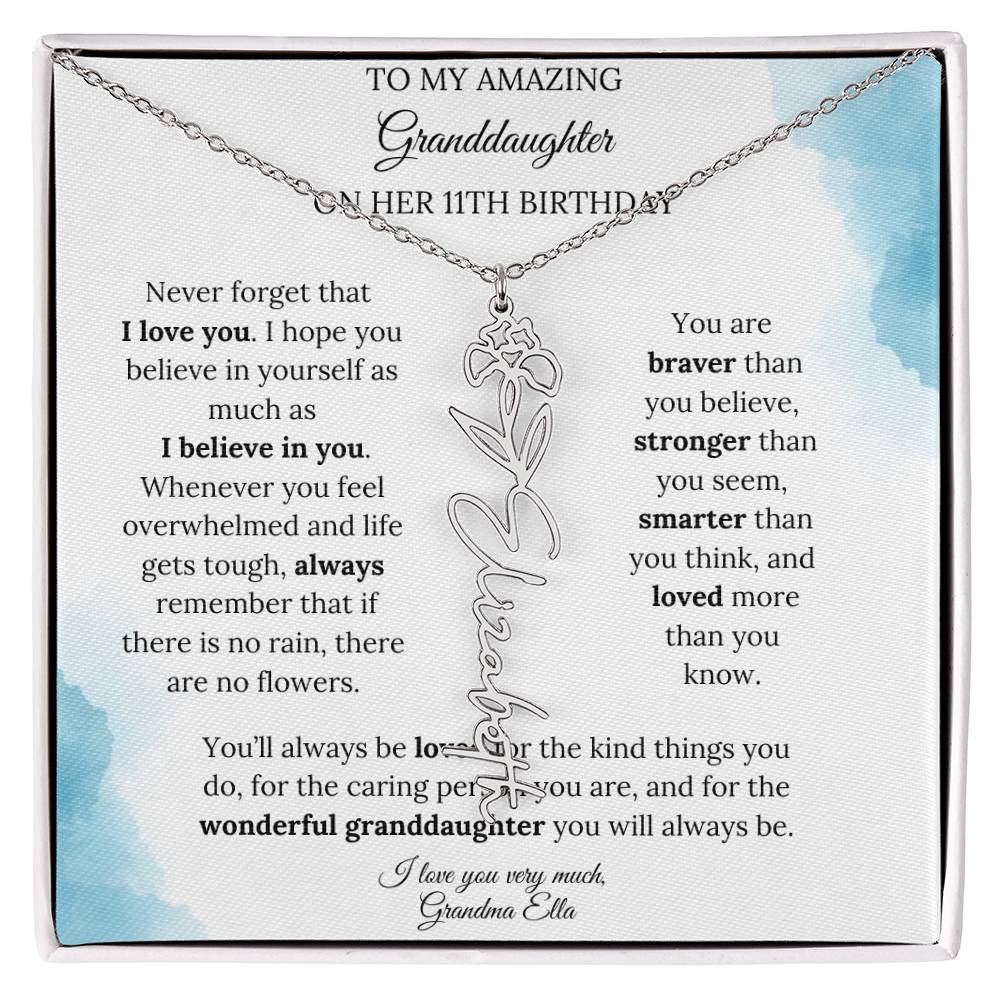 TO MY AMAZING
Granddaughter
ON HER 11TH BIRTHDAY
Never forget that
I love you. I hope you
believe in yourself as
much as
I believe in you.
Whenever you feel
overwhelmed and life
gets tough, always
remember that if
there is no rain, there
are no flowers.
You are
braver than
you believe,
stronger than
you seem,
smarter than
you think, and
loved more
than you
know.
Elizabeth
You’ll always be loved for the kind things you
do, for the caring person you are, and for the
wonderful granddaughter you will always be.
I love you very much,
Grandma Ella